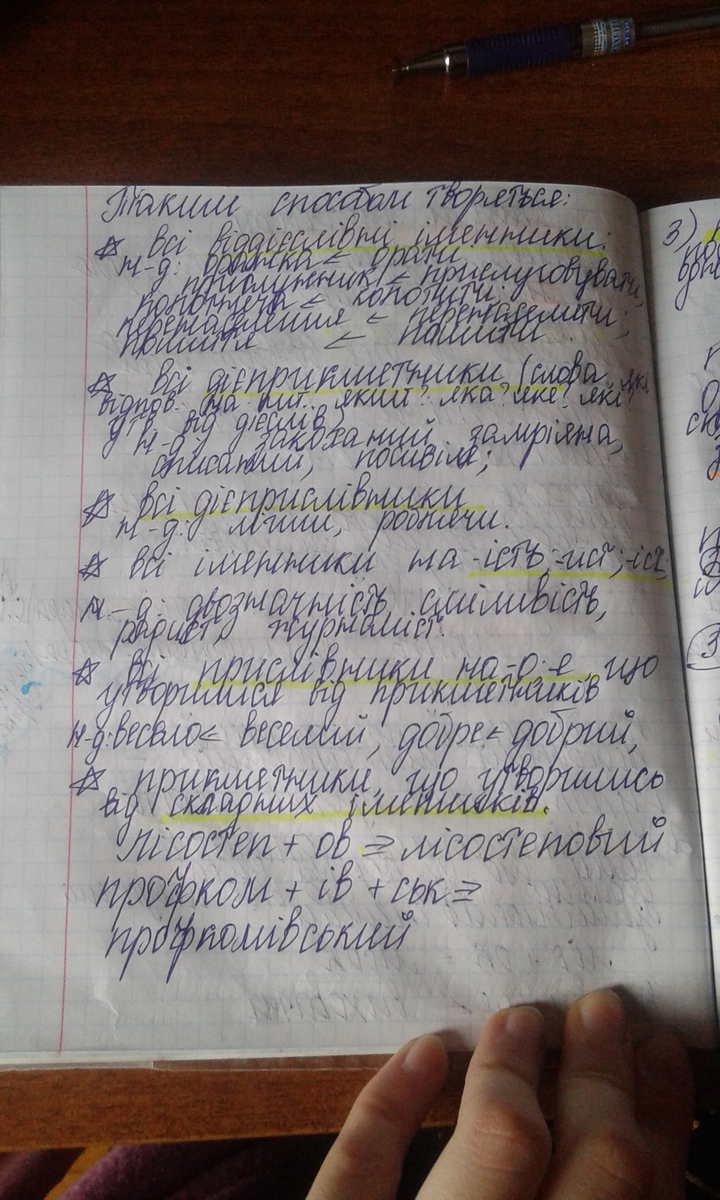 Таким способом творяться:
☆ всі віддієслівні іменники:
н-д: оранка < орати,
прислужник < прислуговувати,
колотнеча < колотити;
перенаселення < перенаселити;
пошиття < пошити
☆ всі дієприкметники (слова, які
відпов. на пит. який? яка? яке? які?
утв. від дієслів
н-д: закоханий, замріяна,
списаний, посивіле;
☆ всі дієприслівники
н-д: роблячи.
☆ всі іменники на -ість, -ист, -іст;
н-д: двозначність, сміливість,
радист, журналіст.
☆ всі прислівники на -о, -е, що
утворилися від прикметників
н-д: весело < веселий, добре < добрий,
☆ прикметники, що утворились
від складних іменників.
лісостеп + ов ⇒ лісостеповий
профком + ів + ськ ⇒
профкомівський
3)